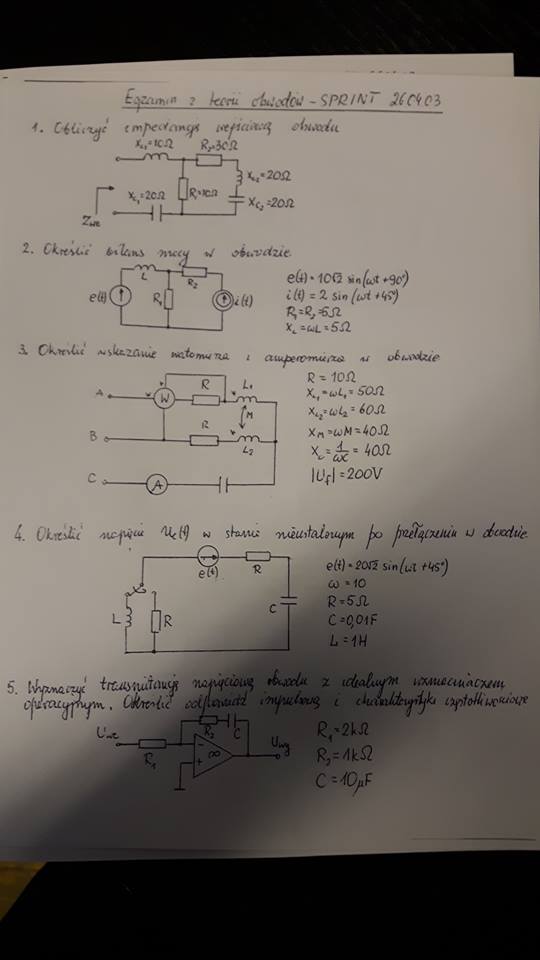 Egzamin z teorii obwodów - SPRINT 26.04.03
1. Obliczyć impedancję wejściową obwodu
X_L1=10Ω R_2=30Ω
X_L2=20Ω
X_C1=20Ω R_1=10Ω X_C2=20Ω
Z_we
2. Określić bilans mocy w obwodzie
L R_2
e(t) R_1 i(t)
e(t) = 10√2 sin(ωt+90°)
i(t) = 2 sin(ωt+45°)
R_1=R_2=5Ω
X_L=ωL=5Ω
3. Określić wskazanie watomierza i amperomierza w obwodzie
A W R L_1
M
B R L_2
C A
R = 10Ω
X_L1=ωL_1=50Ω
X_L2=ωL_2=60Ω
X_M=ωM=40Ω
X_C=1/ωC=40Ω
|U_f|=200V
4. Określić napięcie U_C(t) w stanie nieustalonym po przełączeniu w obwodzie
e(t) R
L R C
e(t)=20√2 sin(ωt+45°)
ω=10
R=5Ω
C=0,01F
L=1H
5. Wyznaczyć transmitancję napięciową obwodu z idealnym wzmacniaczem
operacyjnym. Określić odpowiedź impulsową i charakterystyki częstotliwościowe
U_we R_1 R_2 C - + ∞ U_wy
R_1=2kΩ
R_2=1kΩ
C=10μF